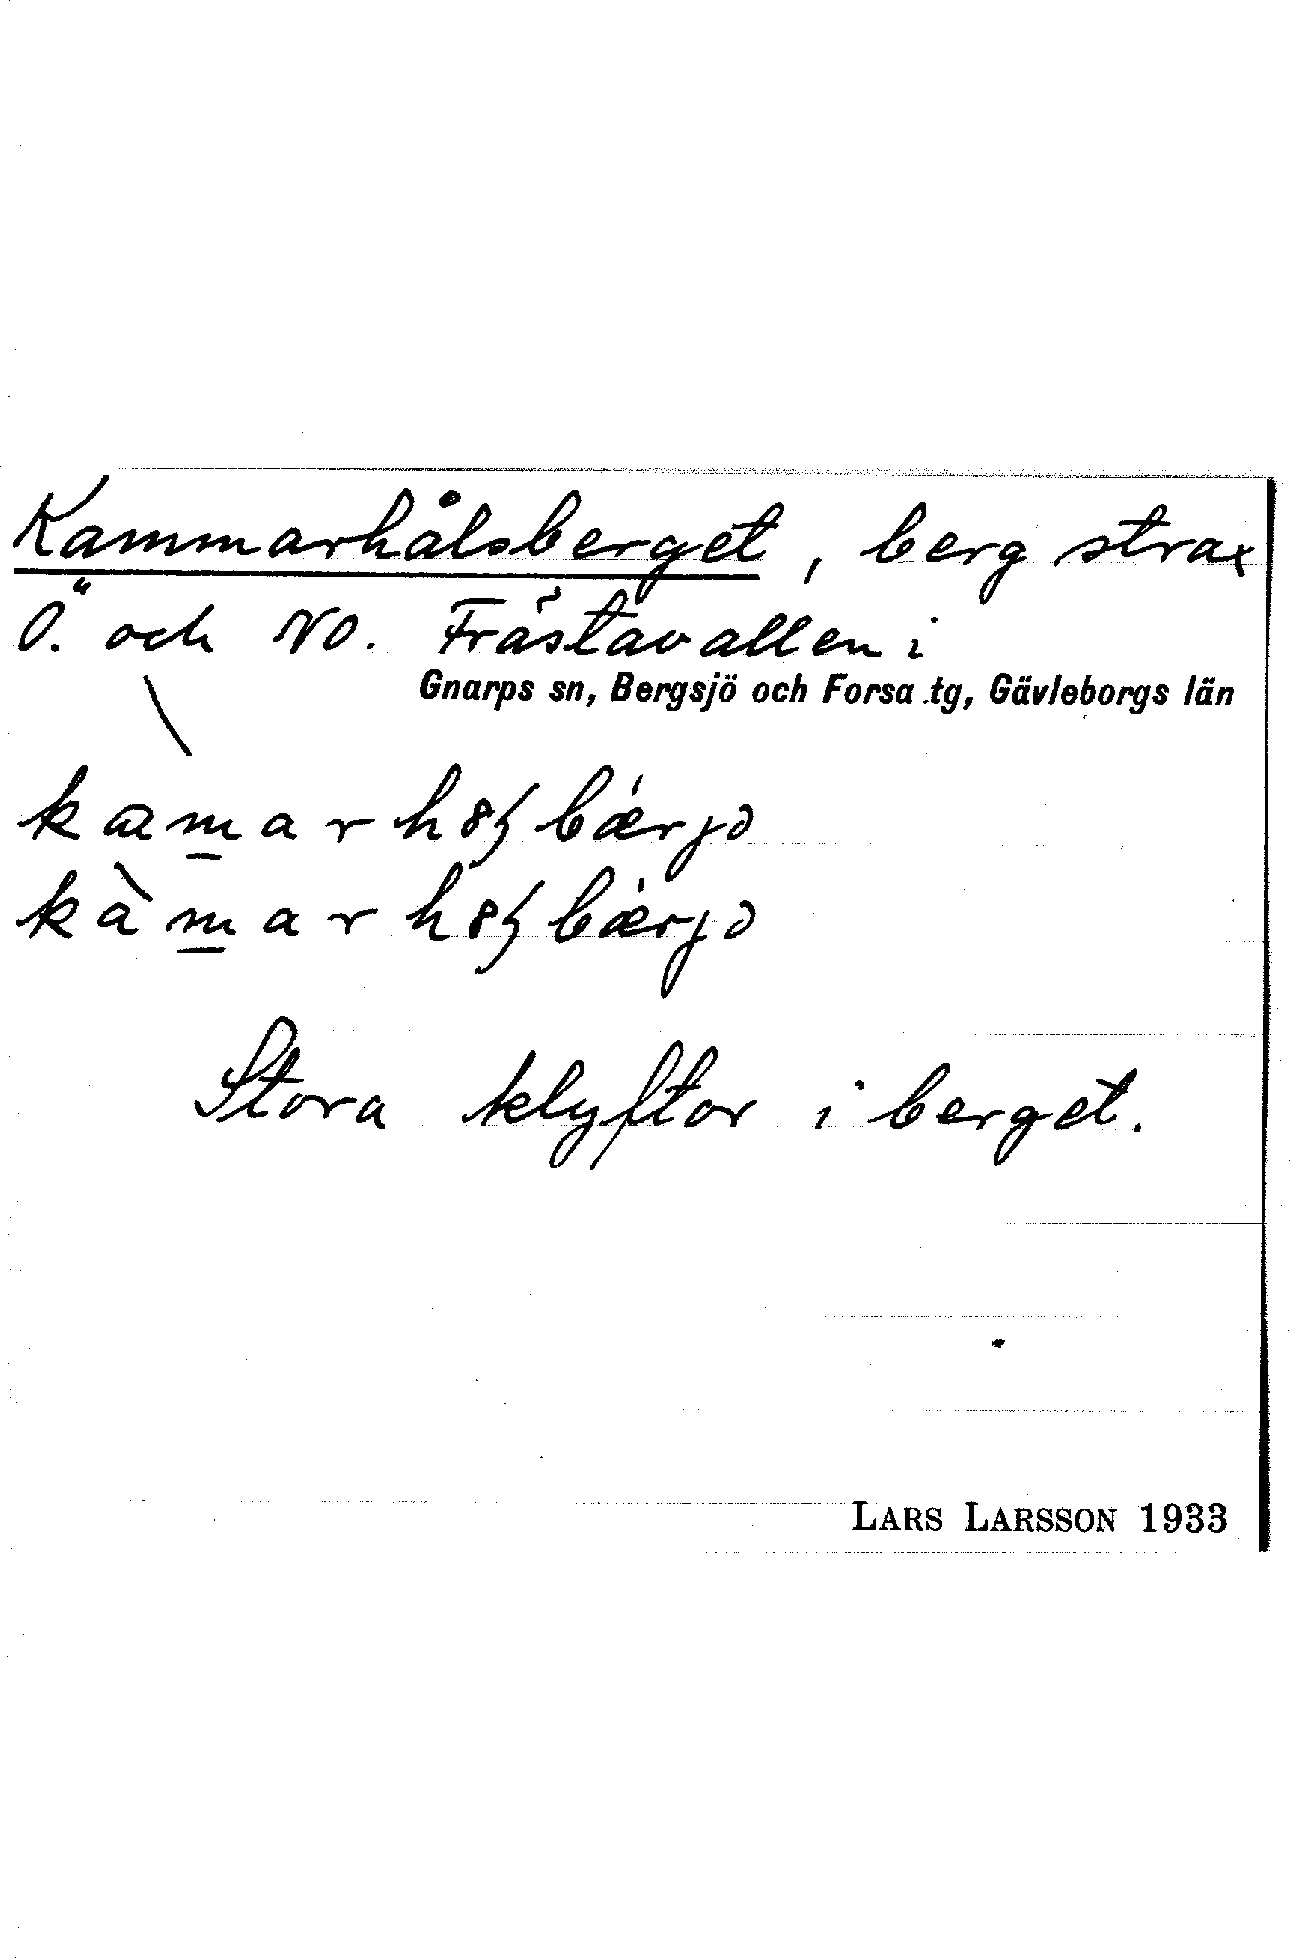 Kammarhålsberget, berg strax
Ö. och NO. Frästavallen i
Gnarps sn, Bergsjö och Forsa tg, Gävleborgs län
Stora klyftor i berget.
LARS LARSSON 1933